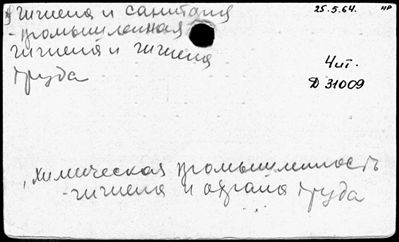 гигиена и санитария
25.5.64. НР
- промышленная
гигиена и гигиена
труда
Чит.
Д 31009
химическая промышленность
- гигиена и охрана труда